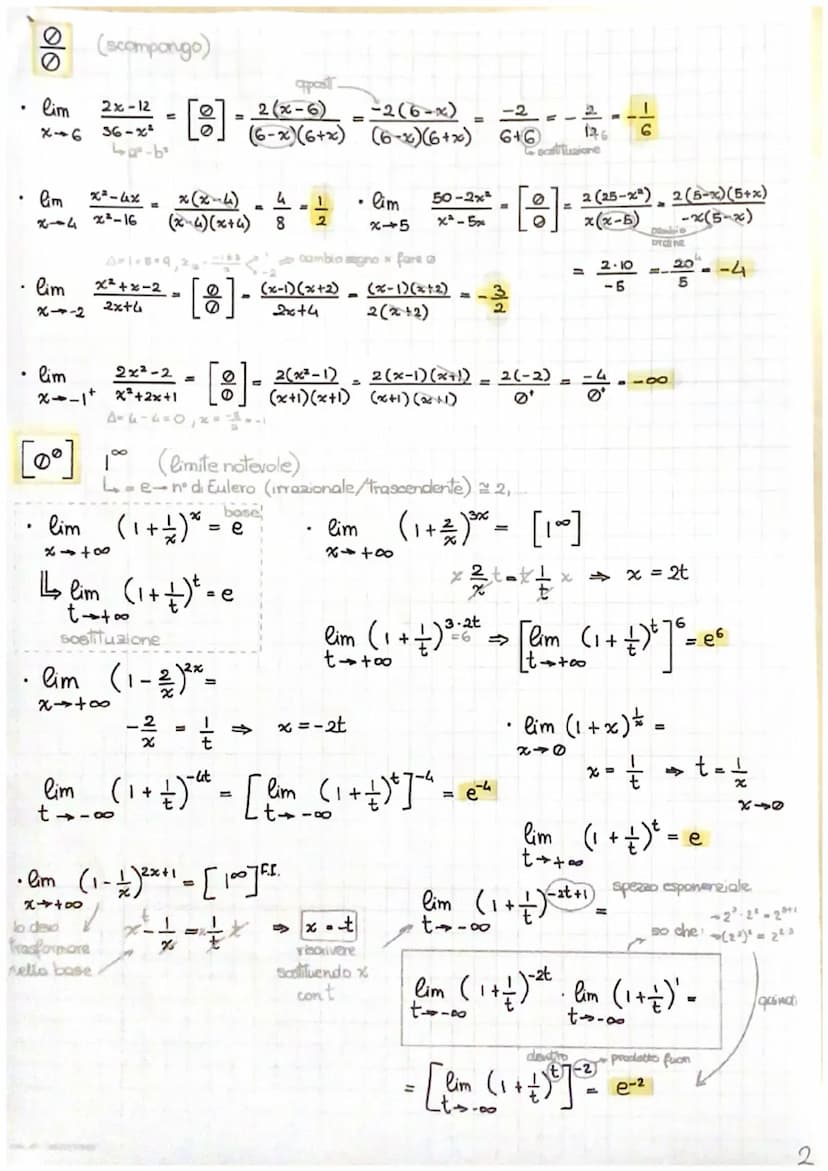 ∅/∅ (scompongo)
opposti
• lim x→6 2x-12/36-x² = [∅/∅] = 2(x-6)/(6-x)(6+x) = -2(6-x)/(6-x)(6+x) = -2/6+6 = -2/12 6 = -1/6
↳a²-b² ↳sostituzione
• lim x→4 x²-4x/x²-16 = x(x-4)/(x-4)(x+4) = 4/8 = 1/2 • lim x→5 50-2x²/x²-5x = [∅/∅] = 2(25-x²)/x(x-5) = 2(5-x)(5+x)/-x(5-x)
cambio ordine
= 2·10/-5 = -20/5 = -4
Δ=1+8=9, cambio segno x fare ∅
• lim x→-2 x²+x-2/2x+4 = [∅/∅] = (x-1)(x+2)/2x+4 = (x-1)(x+2)/2(x+2) = -3/2
• lim x→-1⁺ 2x²-2/x²+2x+1 = [∅/∅] = 2(x²-1)/(x+1)(x+1) = 2(x-1)(x+1)/(x+1)(x+1) = 2(-2)/∅⁺ = -4/∅⁺ = -∞
Δ=4-4=0, x=-2/2=-1
[∅^∅] 1^∞ (limite notevole)
↳ = e → n° di Eulero (irrazionale/trascendente) ≅ 2,...
base!
• lim x→+∞ (1+1/x)^x = e
↳ lim t→+∞ (1+1/t)^t = e
sostituzione
• lim x→+∞ (1+2/x)^3x = [1^∞]
x 2/x t = t 1/t x ⇒ x = 2t
lim t→+∞ (1+1/t)^3·2t =6 ⇒ [lim t→+∞ (1+1/t)^t]^6 = e⁶
• lim x→+∞ (1-2/x)^2x =
-2/x = 1/t ⇒ x = -2t
lim t→-∞ (1+1/t)^-4t = [lim t→-∞ (1+1/t)^t]^-4 = e⁻⁴
• lim x→∅ (1+x)^1/x =
x = 1/t ⇒ t = 1/x x→∅
lim t→+∞ (1+1/t)^t = e
• lim x→+∞ (1-1/x)^2x+1 = [1^∞] F.I.
lo devo trasformare nella base
t x -1/x = 1/t x t ⇒ x = -t
riscrivere sostituendo x con t
lim t→-∞ (1+1/t)^-2t+1 =
spezzo esponenziale
so che: →2³·2¹ = 2³⁺¹
→(2³)² = 2²·³
lim t→-∞ (1+1/t)^-2t · lim t→-∞ (1+1/t)^1 =
quindi
dentro prodotto fuori
= [lim t→-∞ (1+1/t)^t]^-2 = e⁻²
2